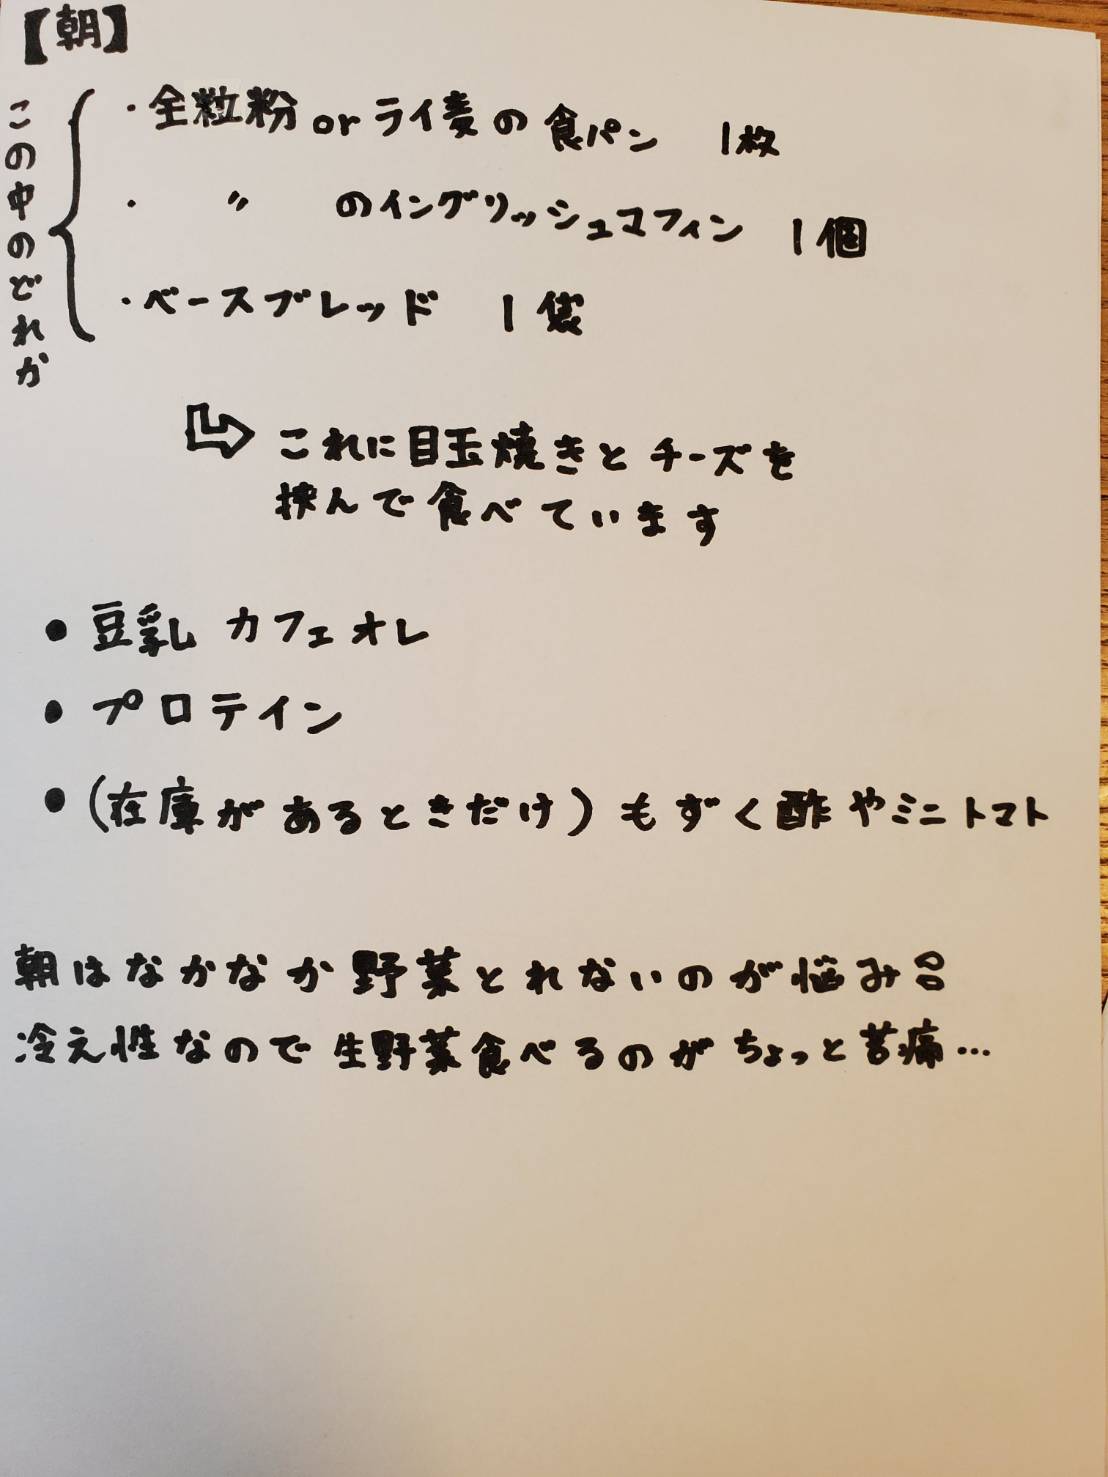 【朝】
この中のどれか
・全粒粉 or ライ麦の食パン 1枚
・ 〃 のイングリッシュマフィン 1個
・ベースブレッド 1袋
これに目玉焼きとチーズを
挟んで食べています
● 豆乳カフェオレ
● プロテイン
● (在庫があるときだけ)もずく酢やミニトマト
朝はなかなか野菜とれないのが悩み
冷え性なので生野菜食べるのがちょっと苦痛…